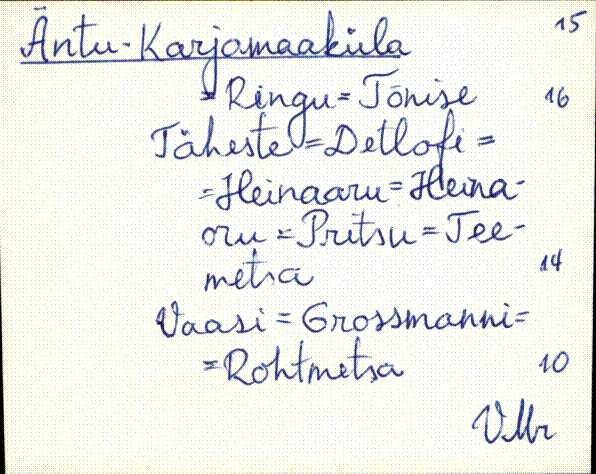 Äntu-Karjamaaküla 15
=Ringu=Tõnise 16
Täheste=Detlofi=
=Heinaaru=Heina-
oru=Pritsu=Tee-
metsa 14
Vaasi=Grossmanni=
=Rohtmetsa 10
VMr